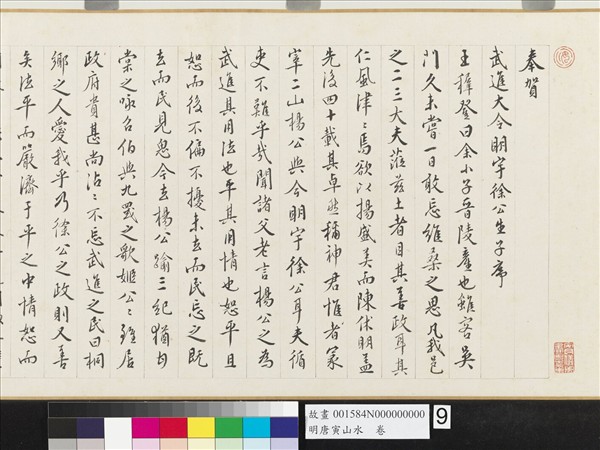 奉賀
武進大令明宇徐公生子序
王穉登曰余小子晉陵產也雖客吳
門久未嘗一日敢忘維桑之思凡我邑
之二三大夫蒞茲土者目其善政耳其
仁風津〻焉欲以揚盛美而陳休明蓋
先後四十載其卓然稱神君惟者冢
宰二山楊公與今明宇徐公耳夫循
吏不難乎哉聞諸父老言楊公之為
武進其用法也平其用情也恕平且
恕而後不偏不擾未去而民忘之既
去而民見思今去楊公踰三紀猶甘
棠之咏召伯與九罭之歌姬公〻雖居
政府貴甚尚沾〻不忘武進之民曰桐
鄉之人愛我乎乃徐公之政則又善
矣法平而嚴濟于平之中情恕而
故畫 001584N000000000
明唐寅山水 卷
9